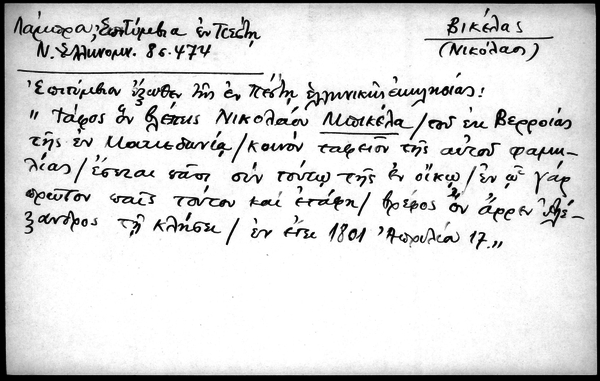 Λάμπρα, Ἐπιτύμβια ἐν Πέστῃ
Ν. Ἑλληνομν. 8ς. 474
Βικέλας
(Νικόλαος)
Ἐπιτύμβιον ἔξωθεν τῆς ἐν Πέστῃ ἑλληνικῆς ἐκκλησίας:
" Τάφος ὃν βλέπεις Νικολάου Μπικέλα / τοῦ ἐκ Βερροίας
τῆς ἐν Μακεδονίᾳ / κοινὸν ταφεῖον τῆς αὐτοῦ φαμι-
λίας / ἔσεται πᾶσι σὺν τούτῳ τῆς ἐν οἴκῳ / ἐν ᾧ γάρ
πρῶτον παῖς τούτου καὶ ἐτάφη / βρέφος ὂν ἄρρεν Ἀλέ-
ξανδρος τῇ κλήσει / ἐν ἔτει 1801 Ἀπριλίᾳ 17."